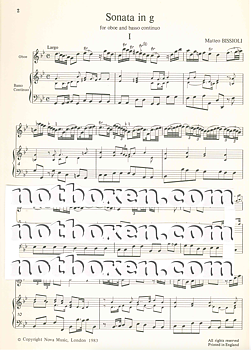 2
Sonata in g
for oboe and basso continuo
Matteo BISSIOLI
I
Largo
Oboe
Basso
Continuo
notboxen.com
notboxen.com
notboxen.com
© Copyright Nova Music, London 1981
All rights reserved
Printed in England